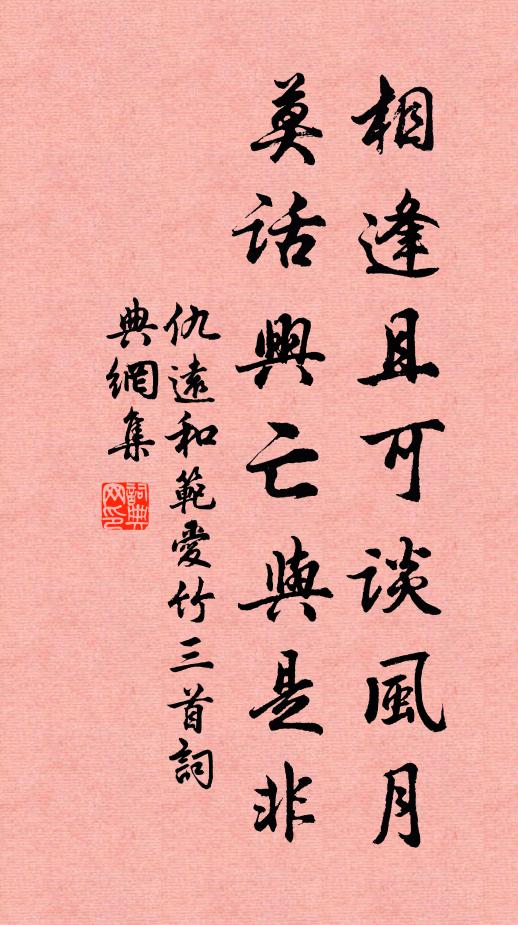 相逢且可談風月
莫話興亡與是非
仇遠和範愛竹三首詞
典網集
詞典網印